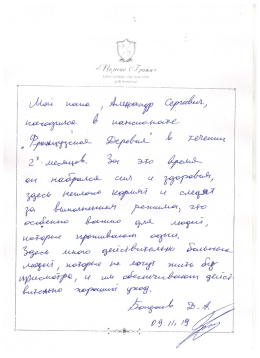 Мой папа, Александр Сергеевич,
находился в пансионате
"Французская Деревня" в течении
2х месяцев. За это время
он набрался сил и здоровья,
здесь неплохо кормят и следят
за выполнением режима, что
особенно важно для людей,
которые проживают одни.
Здесь много действительно больных
людей, которые не могут жить без
присмотра, и им обеспечивают дейст
вительно хороший уход.
Д.А.
09.11.19